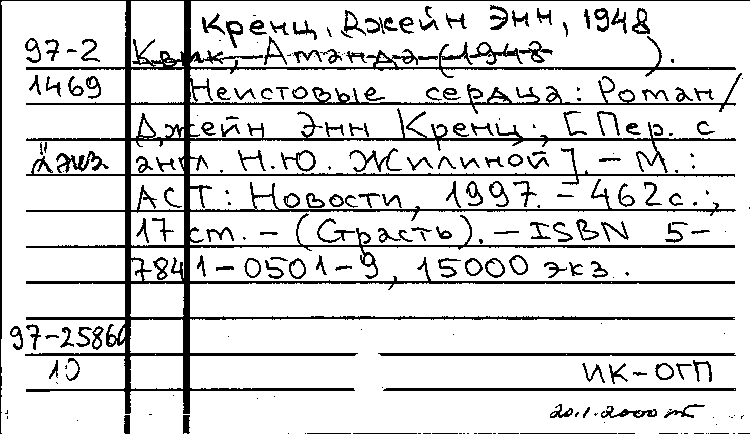 Кренц, Джейн Энн, 1948
97-2 Квик, Аманда (1948 ).
1469 Неистовые сердца: Роман/
Джейн Энн Кренц; [Пер. с
2 экз. англ. Н.Ю. Жилиной]. – М.:
АСТ: Новости, 1997. – 462с.;
17 см. – (Страсть). – ISBN 5-
7841-0501-9, 15000 экз.
97-25860
10 ИК-ОГП
20.1.2000